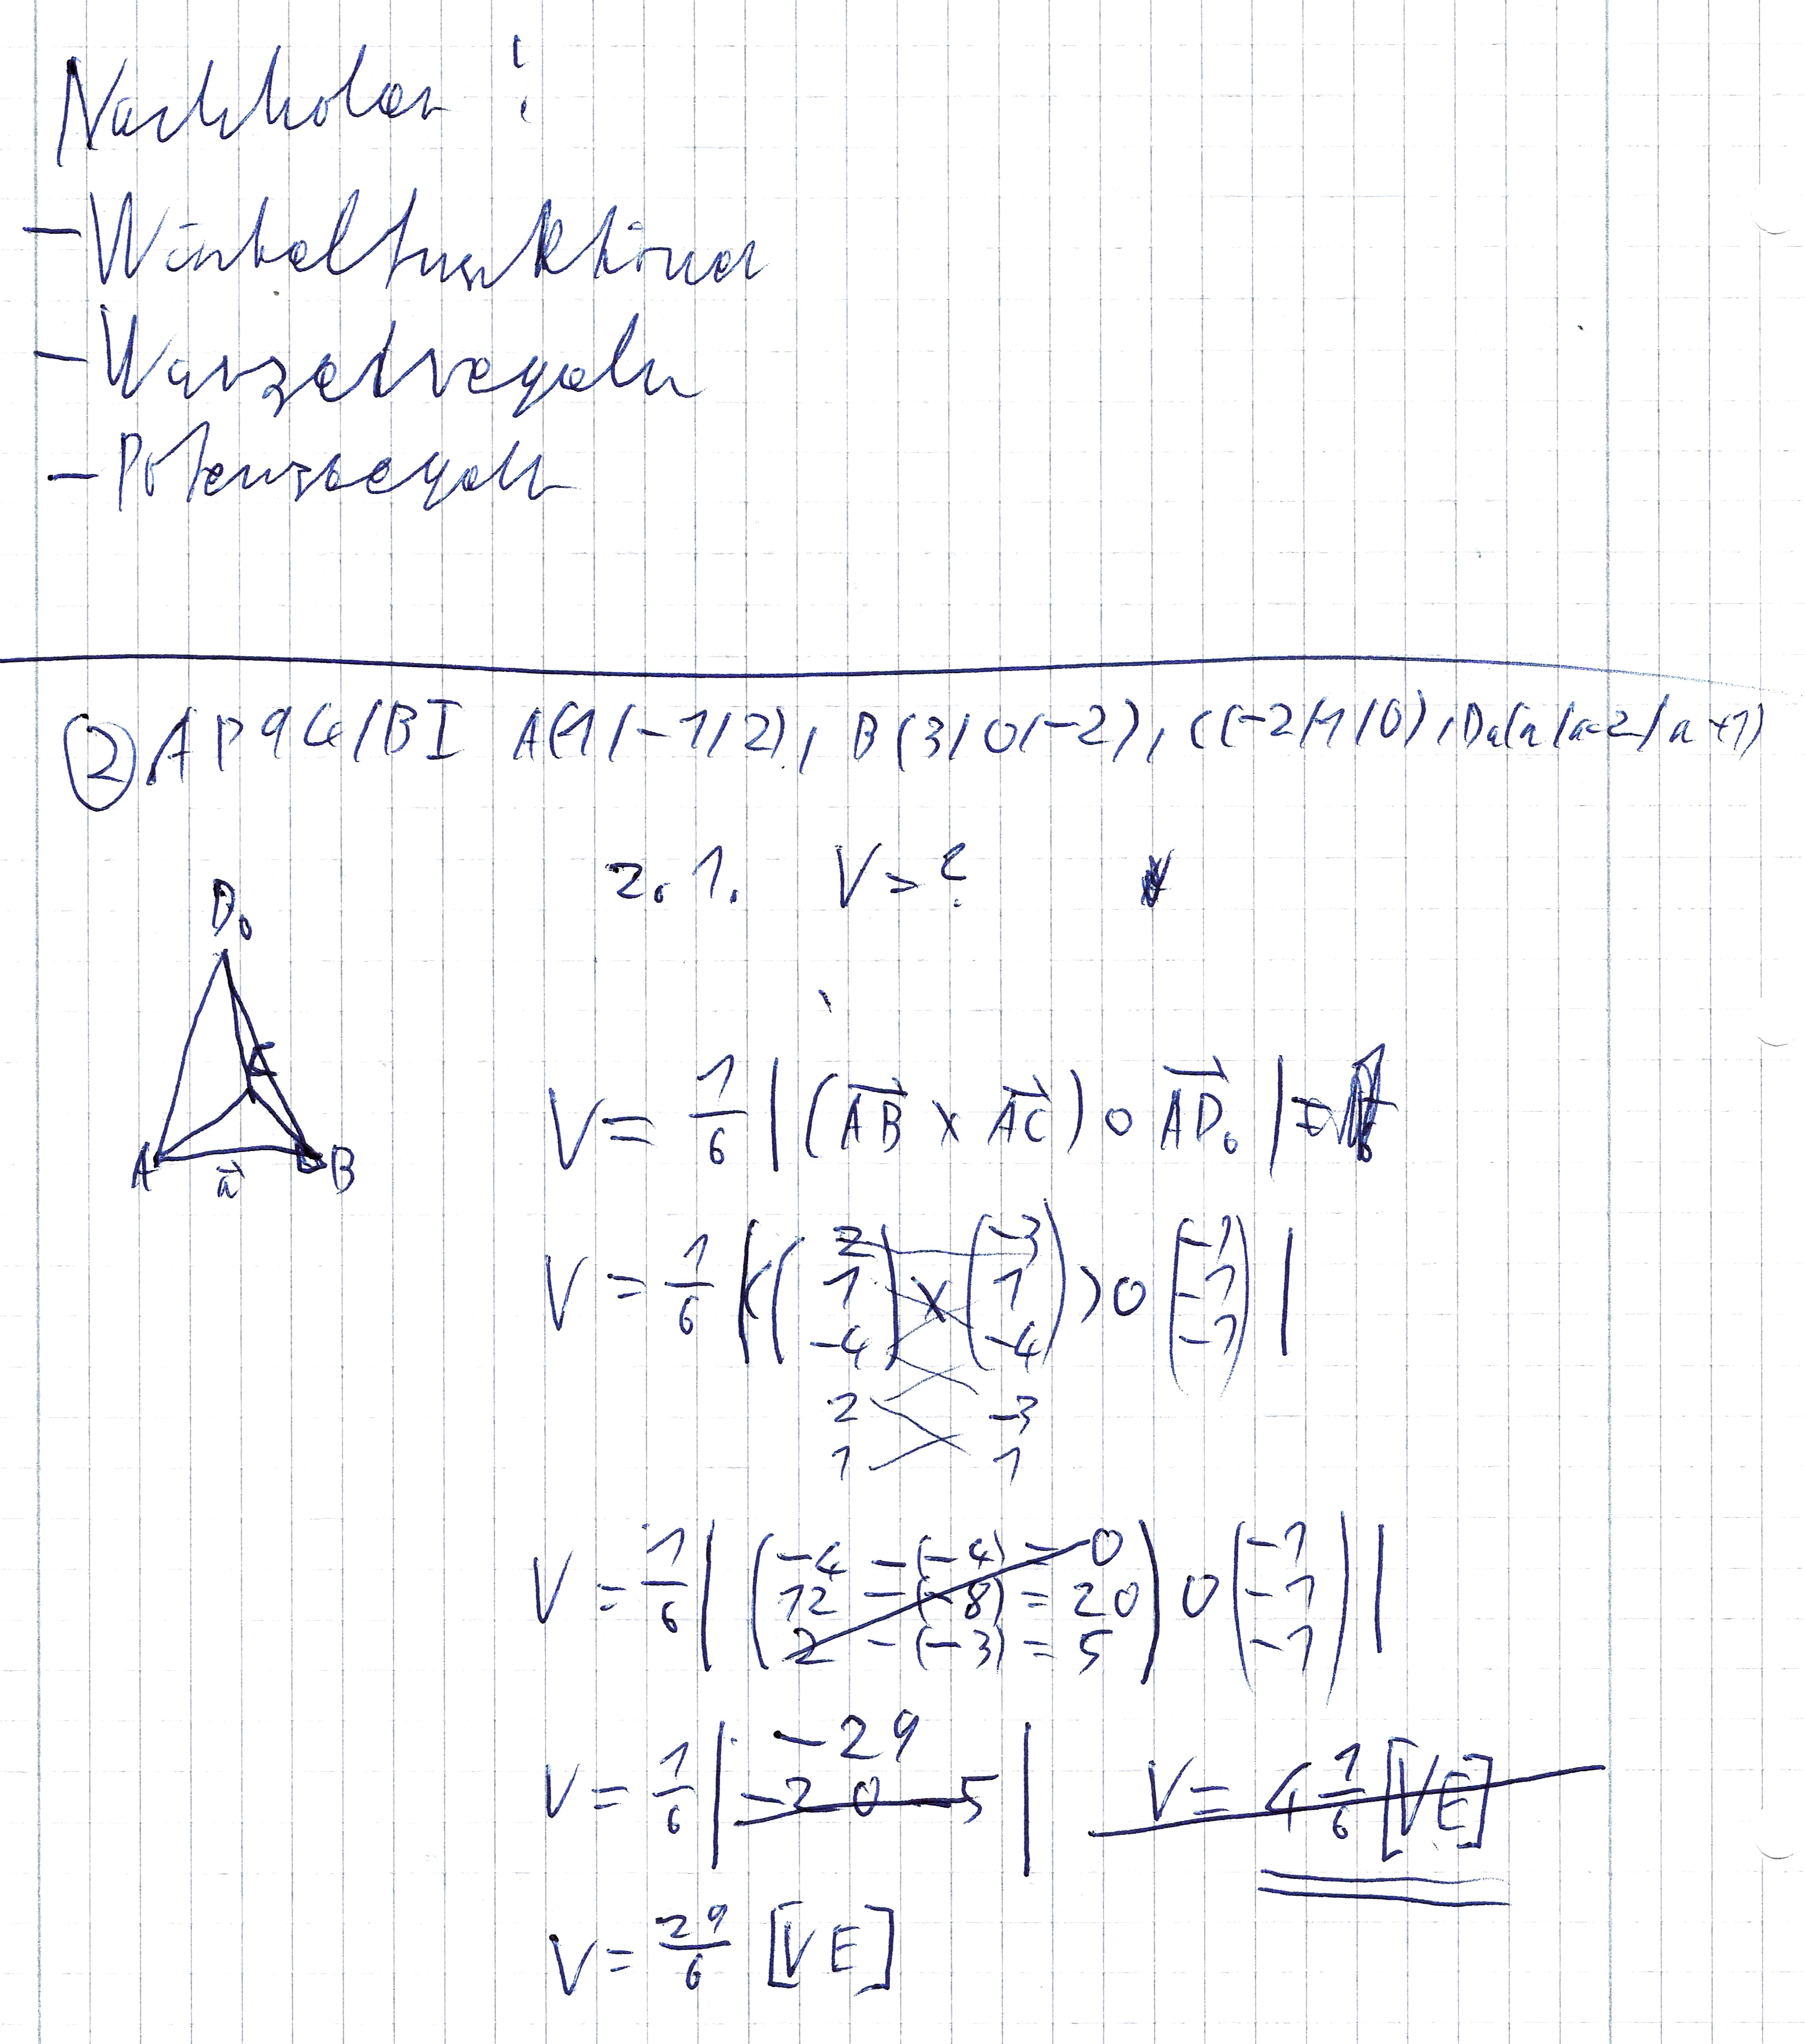 Nachholen !
- Winkelfunktionen
- Wurzelregeln
- Potenzregeln
② AP 94/BI A(1/-1/2), B(3/0/-2), C(-2/1/0), Da(a/a-2/a+1)
2.1. V = ?
D₀
C
A a⃗ B
V = 1/6 | (AB⃗ × AC⃗) ∘ AD₀⃗ | =
V = 1/6 |( (2 1 -4) × (-3 1 -4) ) ∘ (-1 -1 -1) |
2 -3
1 1
V = 1/6 | ( -4 - (-4) = 0
12 - (-8) = 20
2 - (-3) = 5 ) ∘ (-1 -1 -1) |
-29
V = 1/6 | -20 -5 | V = 4 1/6 [VE]
V = 29/6 [VE]